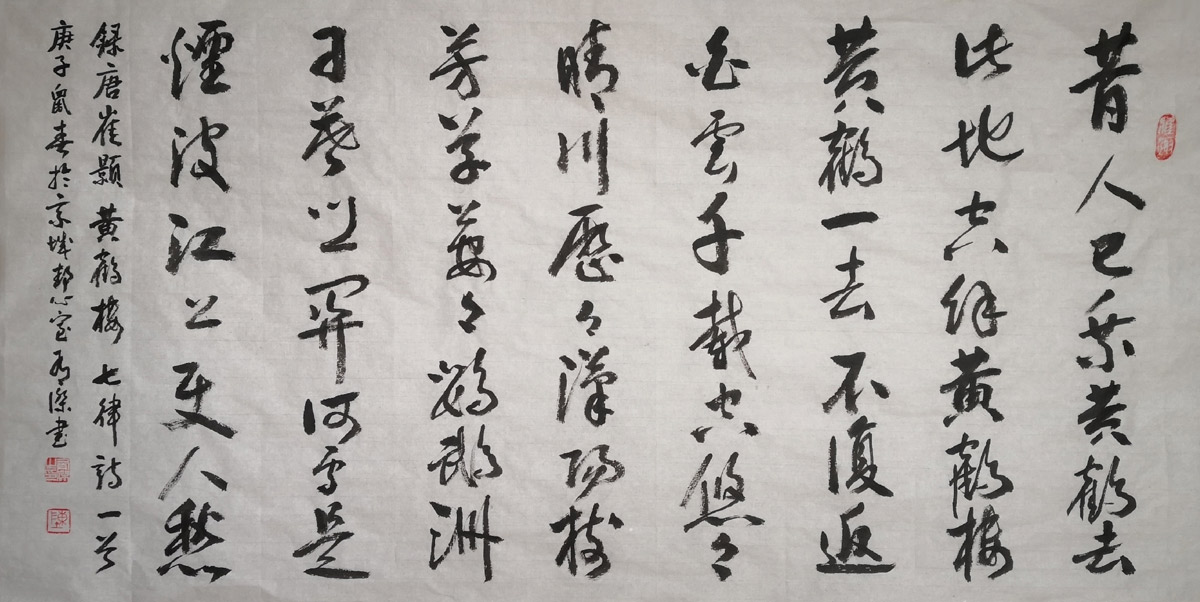 昔人已乘黄鶴去
此地空餘黄鶴樓
黄鶴一去不復返
白雲千載空悠々
晴川歷々漢陽樹
芳草萋々鸚鵡洲
日暮鄉關何處是
煙波江上使人愁
錄唐崔顥黄鶴樓七律詩一首
庚子鼠春於京城靜心室書